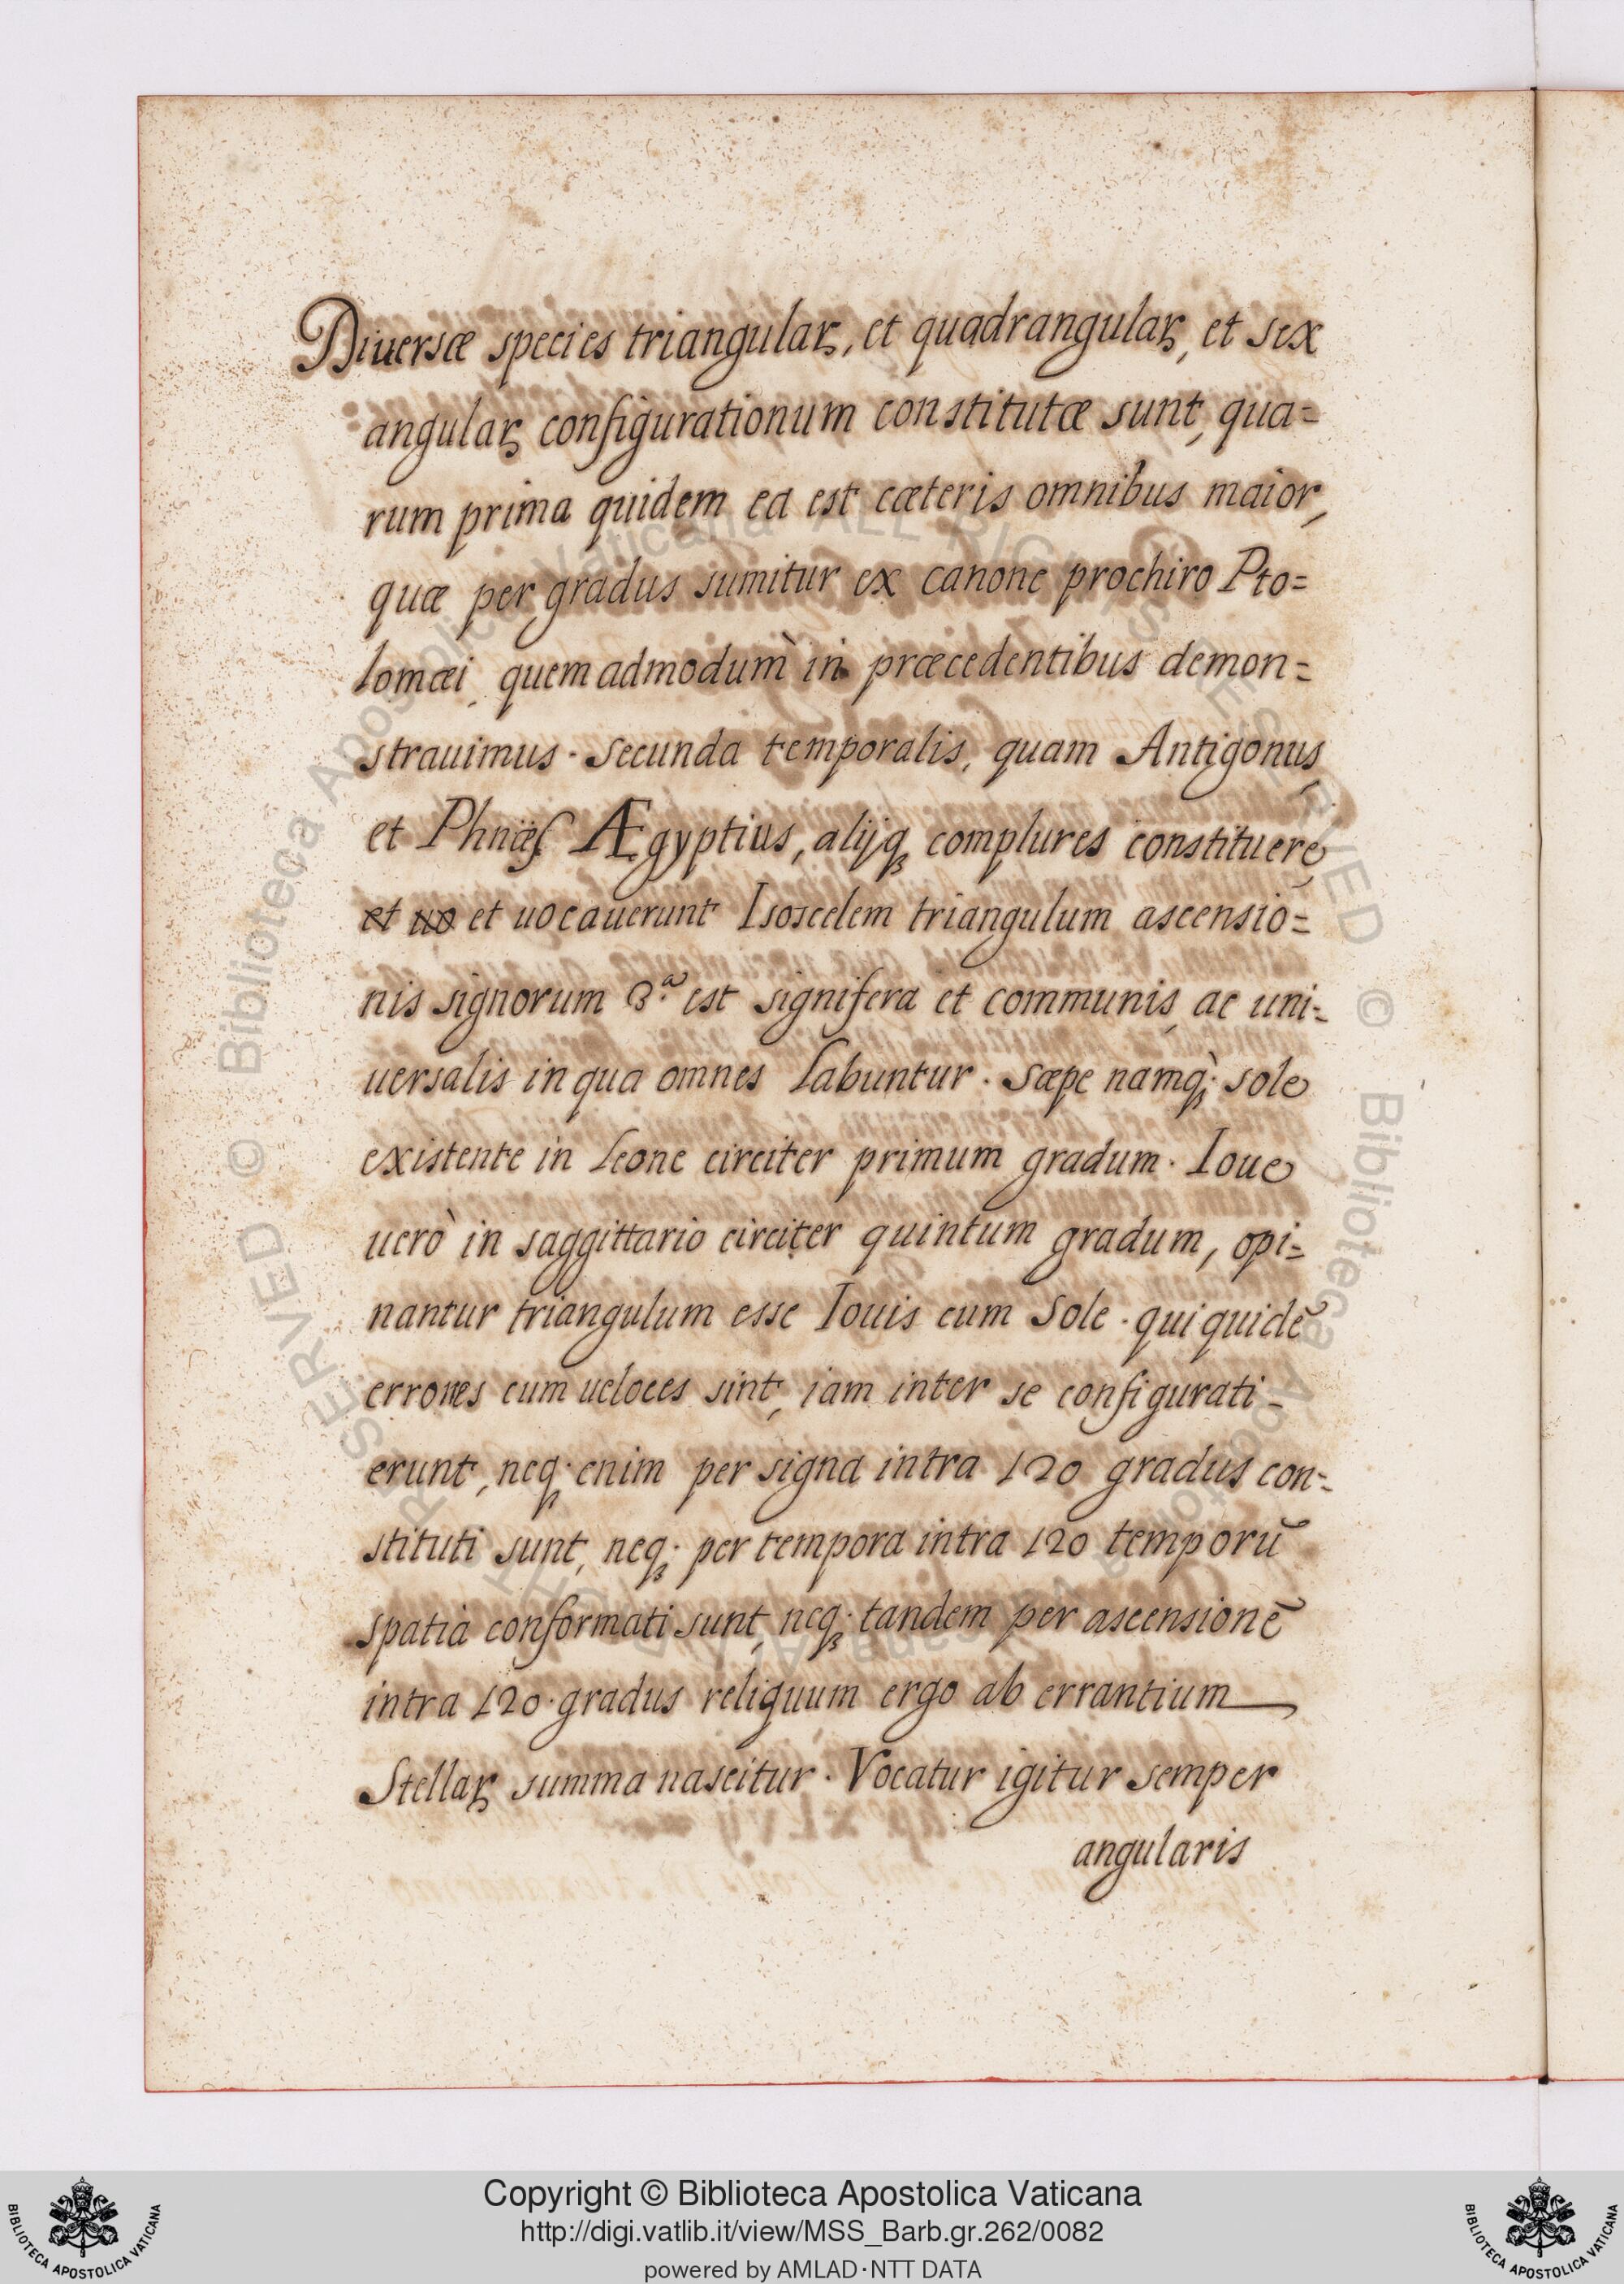 Diuersæ species triangulaꝝ, et quadrangulaꝝ, et sex
angulaꝝ configurationum constitutæ sunt, qua=
rum prima quidem ea est cæteris omnibus maior,
quæ per gradus sumitur ex canone prochiro Pto=
lomæi, quemadmodum̀ in præcedentibus demon=
strauimus. Secunda temporalis, quam Antigonus,
et Phnæs Ægyptius, alijqꝫ complures constituere,
et uo et uocauerunt Isoscelem triangulum ascensio=
nis signorum 3.ª est signifera et communis, ac uni=
uersalis in qua omnes labuntur. Sæpe namqꝫ̀ sole
existente in Leone circiter primum gradum. Ioue
uerò in saggittario circiter quintum gradum, opi=
nantur triangulum esse Iouis cum Sole. qui quidẽ
errores cum ueloces sint, iam inter se configurati=
erunt, neqꝫ enim per signa intra 120 gradus con=
stituti sunt, neqꝫ per tempora intra 120 temporũ
spatia conformati sunt, neqꝫ tandem per ascensionẽ
intra 120. gradus reliquum ergo ab errantium
Stellaꝝ summa nascitur. Vocatur igitur semper
angularis
Copyright © Biblioteca Apostolica Vaticana
http://digi.vatlib.it/view/MSS_Barb.gr.262/0082
powered by AMLAD·NTT DATA
BIBLIOTECA APOSTOLICA VATICANA
BIBLIOTECA APOSTOLICA VATICANA